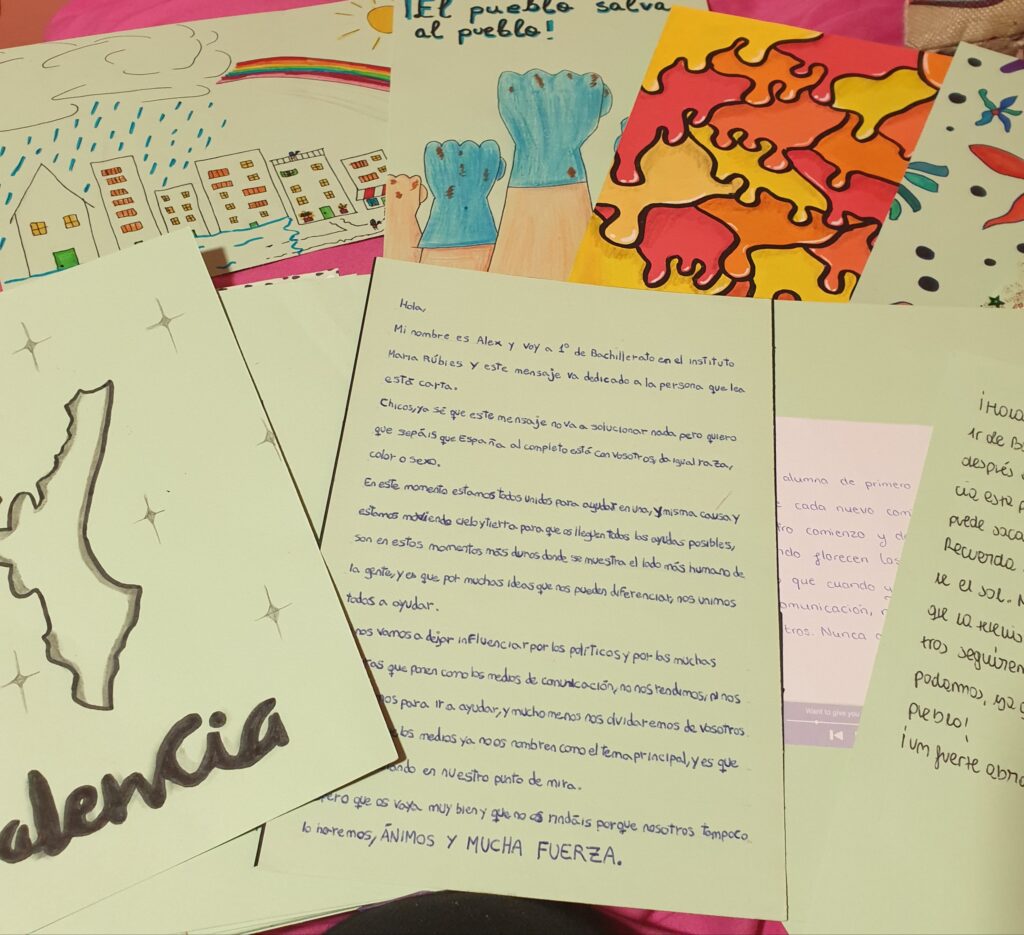 ¡El pueblo salva
al pueblo!
Hola,
Mi nombre es Alex y voy a 1º de Bachillerato en el instituto
Maria Rúbies y este mensaje va dedicado a la persona que lea
esta carta.
Chicos, ya sé que este mensaje no va a solucionar nada pero quiero
que sepáis que España al completo está con vosotros, da igual raza,
color o sexo.
En este momento estamos todos unidos para ayudar en una, y misma causa y
estamos moviendo cielo y tierra para que os lleguen todos las ayudas posibles,
son en estos momentos más duros donde se muestra el lado más humano de
la gente, y es que por muchas ideas que nos pueden diferenciar, nos unimos
todos a ayudar.
nos vamos a dejar influenciar por los políticos y por las muchas
que ponen como los medios de comunicación, no nos rendimos, ni nos
para ir a ayudar, y mucho menos nos olvidaremos de vosotros
los medios ya no os nombren como el tema principal, y es que
en nuestro punto de mira.
que os vaya muy bien y que no os rindáis porque nosotros tampoco
lo haremos, ÁNIMOS Y MUCHA FUERZA.
alencia
alumna de primero
cada nuevo com
comienzo y d
florecen los
que cuando
omunicación,
tros. Nunca
Want to give you
¡Hola
1r de B
después
cia esta p
puede saca
Recuerda
el sol.
que la
tros seguirem
podamos, ya
pueblo!
¡un fuerte abra